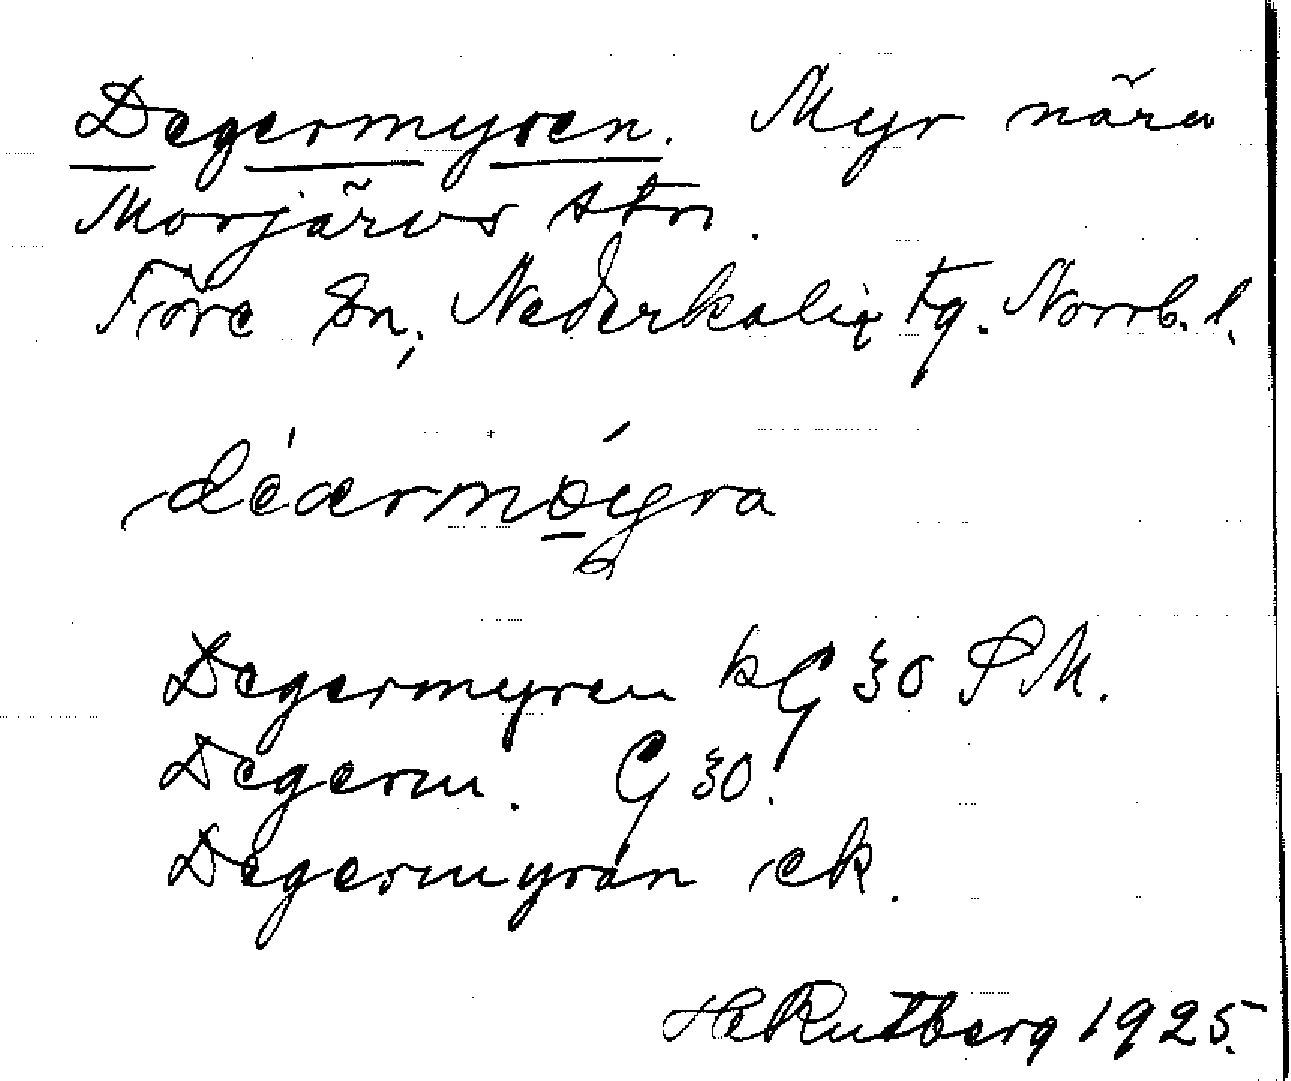 Degermyren. Myr nära
Morjärvs stn.
Töre sn, Nederkalix tg. Norrb. l.
Degermyren kG 30 SM.
Degerm. G 30.
Degermyrån ek.
HRutberg 1925.